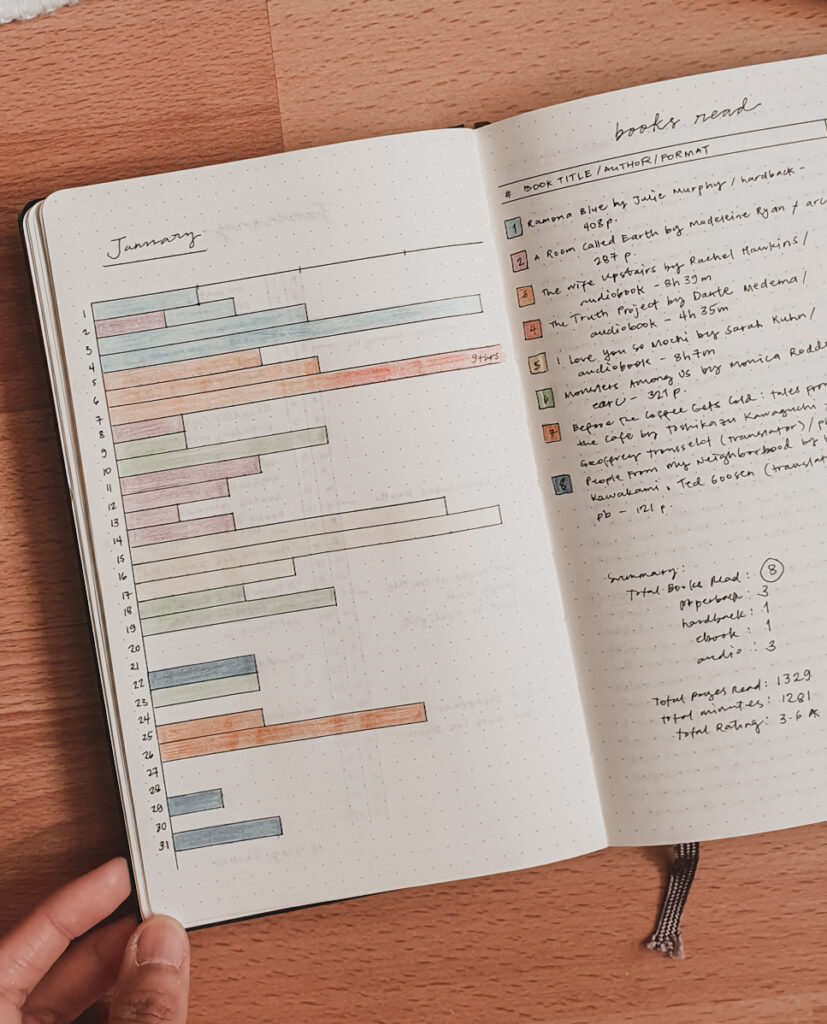 January
1
2
3
4
5
6
7
8
9
10
11
12
13
14
15
16
17
18
19
20
21
22
23
24
25
26
27
28
29
30
31
9+hrs
books read
# BOOK TITLE / AUTHOR / FORMAT
1 Ramona Blue by Julie Murphy / hardback -
408p.
2 A Room Called Earth by Madeleine Ryan / arc
287 p.
3 The Wife Upstairs by Rachel Hawkins /
audiobook - 8h 39m
4 The Truth Project by Dante Medema /
audiobook - 4h 35m
5 I Love You So Mochi by Sarah Kuhn /
audiobook - 8h 7m
6 Monsters Among Us by Monica Rodd
earc - 321 p.
7 Before the Coffee Gets Cold: Tales from
the Cafe by Toshikazu Kawaguchi
Geoffrey Trousselot (translator) /
8 People From My Neighborhood by
Kawakami, Ted Goosen (translat
pb - 121 p.
Summary:
Total Books Read: 8
paperback: 3
hardback: 1
ebook: 1
audio: 3
Total pages Read: 1329
total minutes: 1281
total Rating: 3.6